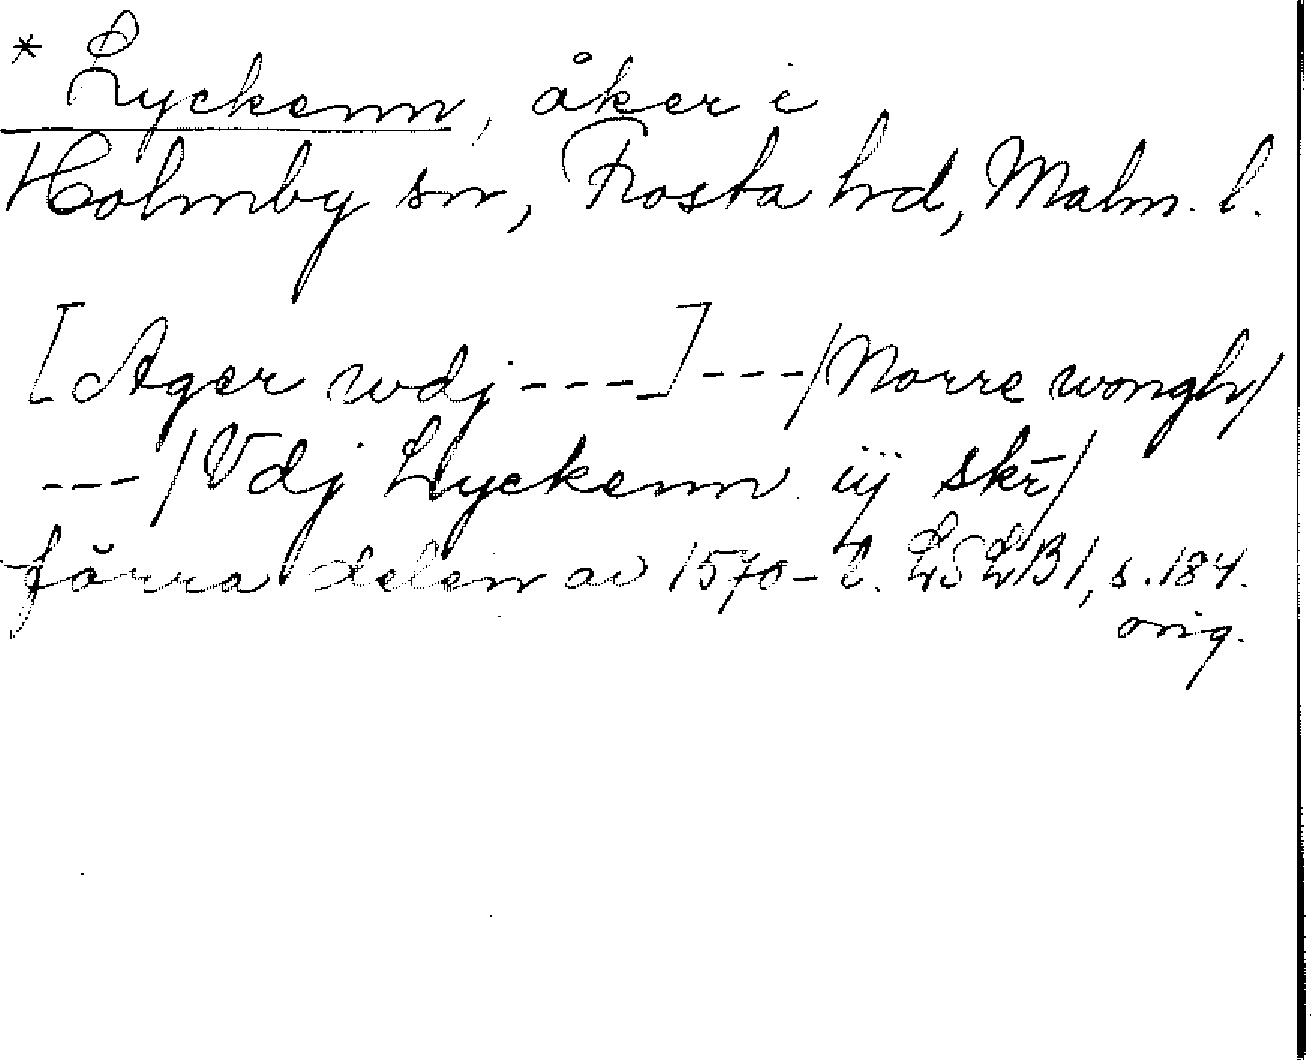 * Lyckenn, åker i
Holmby sn, Frosta hd, Malm. l.
[Ager wdj ---] --- /Norre wongh/
--- /Vdj Lyckenn iij skr̄/
förra delen av 1570-t. LSLB1, s. 184.
orig.